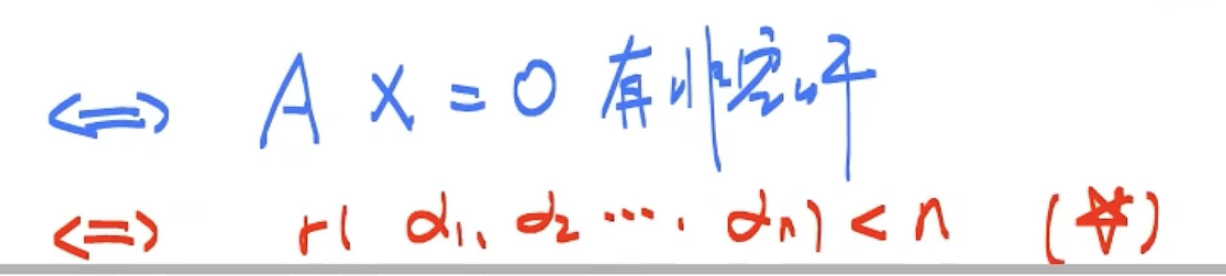 ⟺ A x = 0 有非零解
⟺ r( α₁, α₂ ⋯, αₙ) < n (☆)